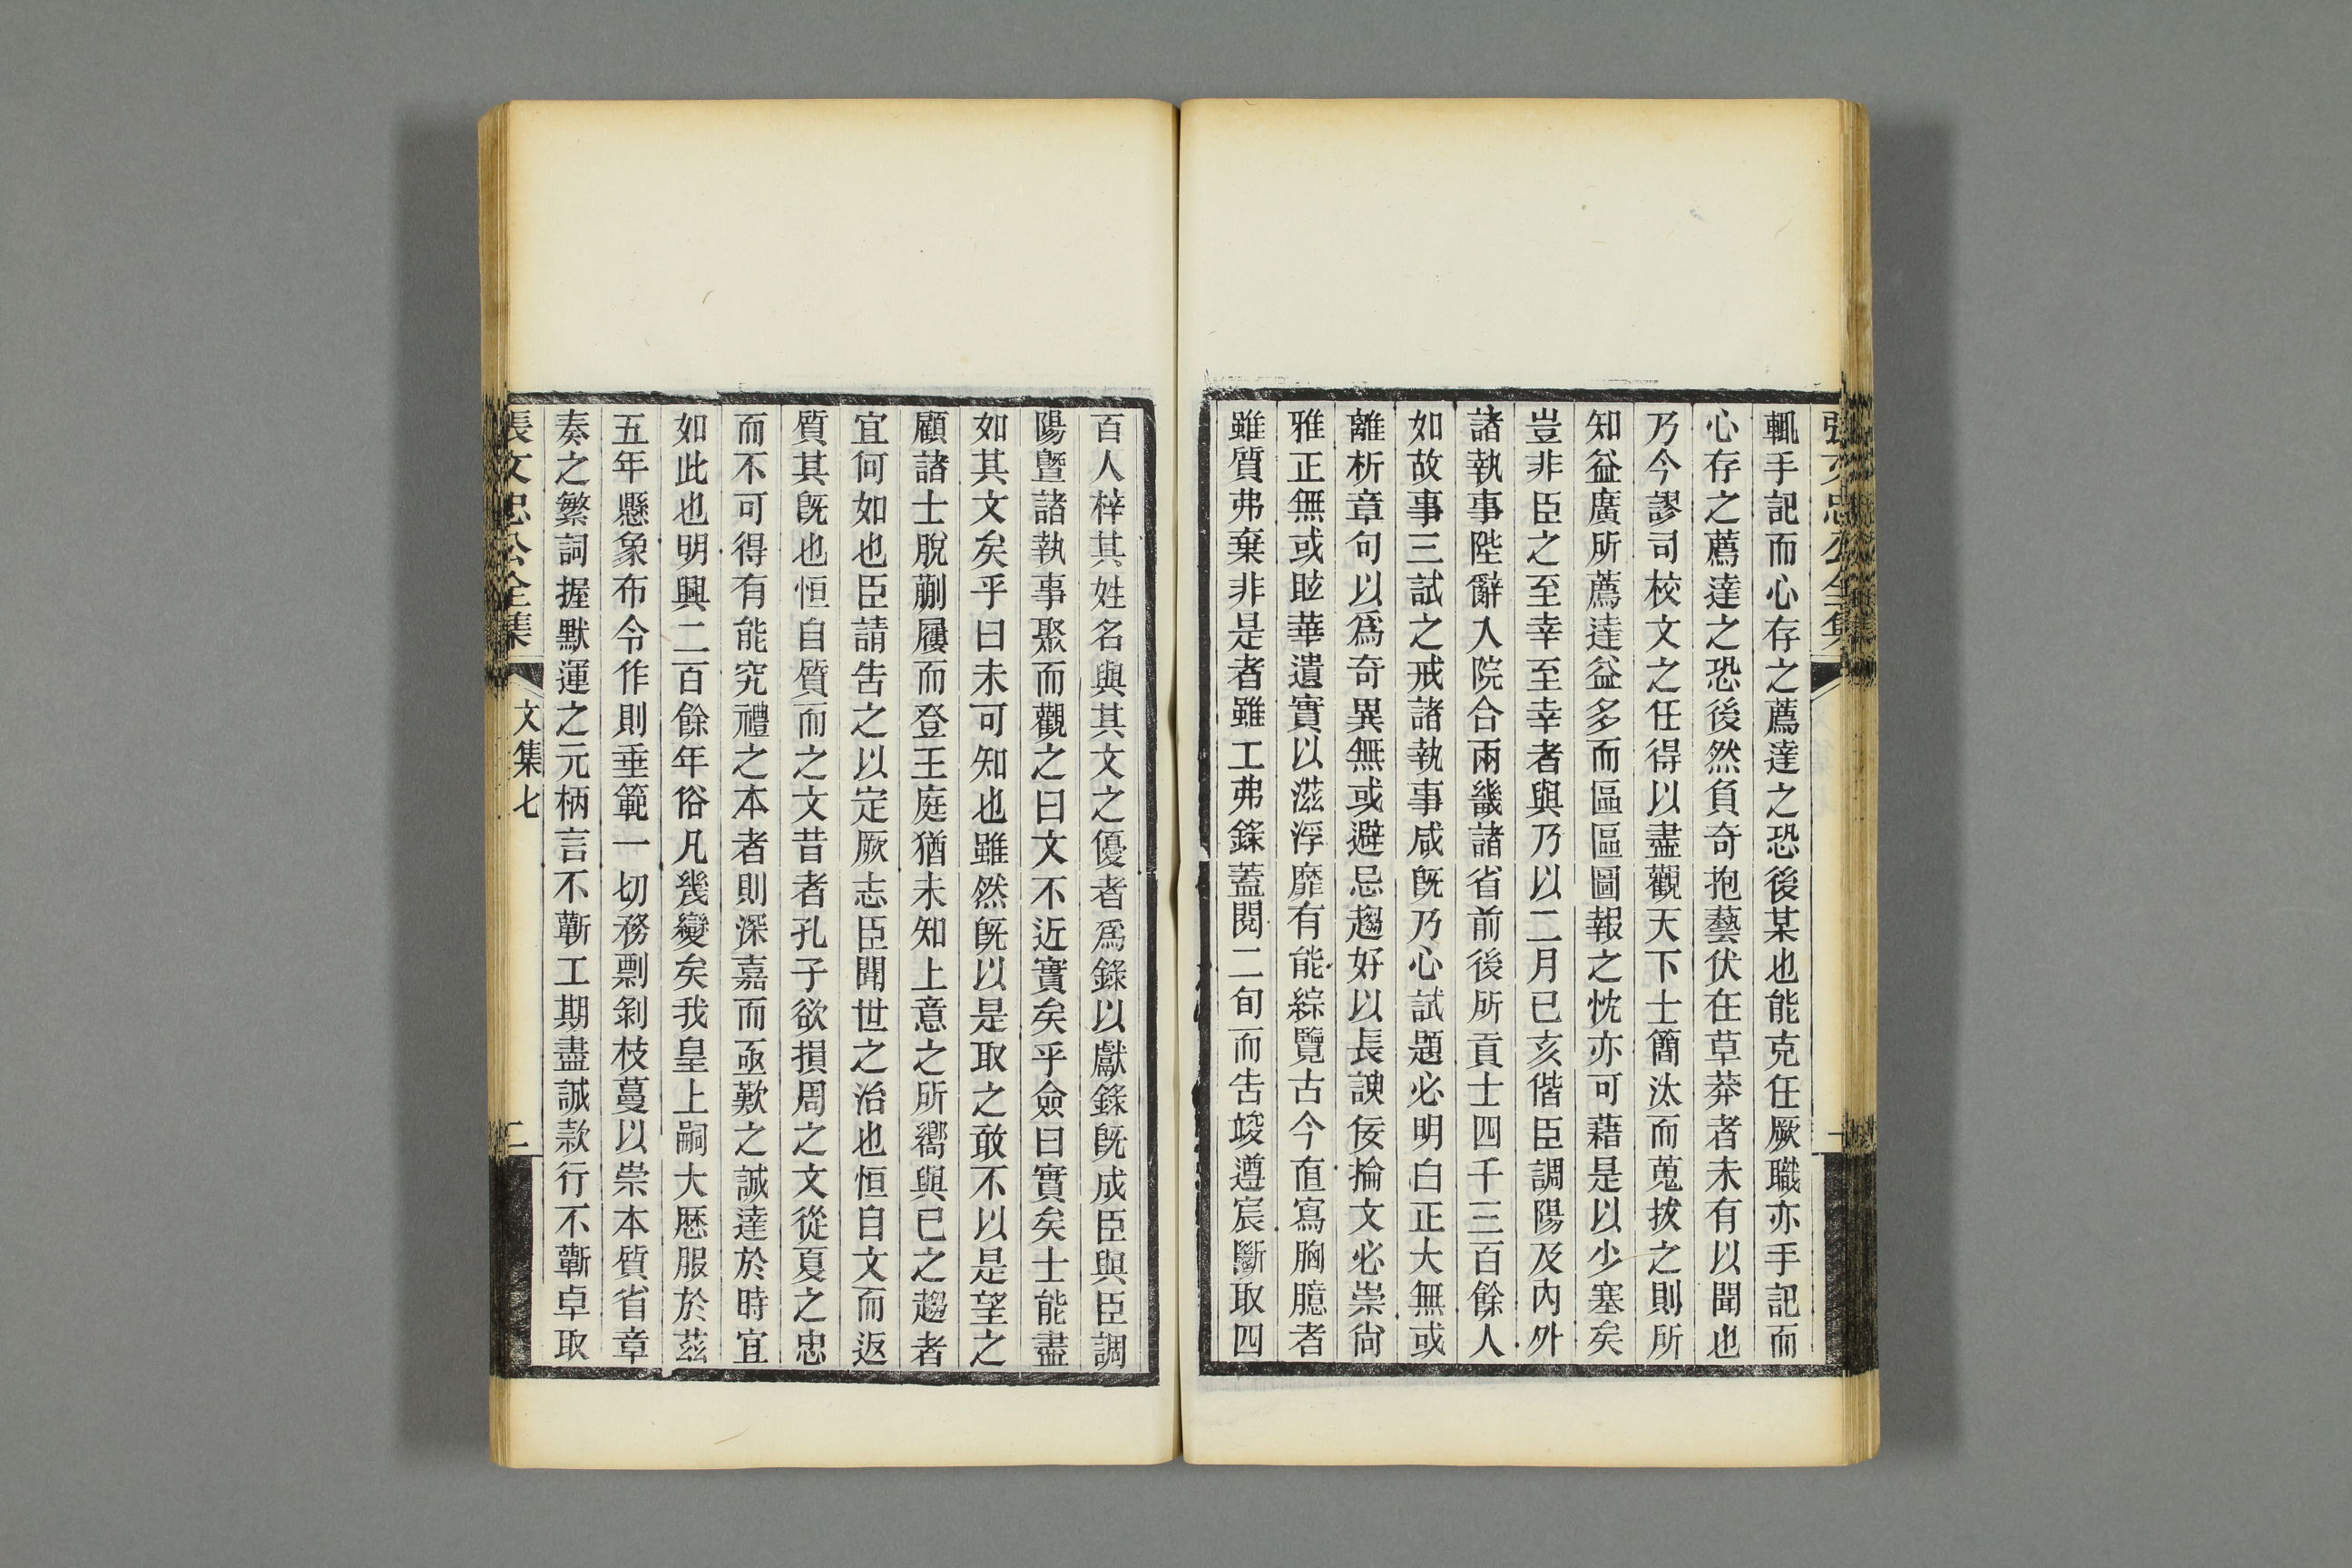 張文忠公全集
一
輒手記而心存之薦達之恐後某也能克任厥職亦手記而
心存之薦達之恐後然負奇抱藝伏在草莽者未有以聞也
乃今謬司校文之任得以盡觀天下士簡汰而蒐拔之則所
知益廣所薦達益多而區區圖報之忱亦可藉是以少塞矣
豈非臣之至幸至幸者與乃以二月已亥偕臣調陽及內外
諸執事陛辭入院合兩畿諸省前後所貢士四千三百餘人
如故事三試之戒諸執事咸旣乃心試題必明白正大無或
離析章句以爲奇異無或避忌趨好以長諛佞掄文必崇尙
雅正無或眩華遺實以滋浮靡有能綜覽古今直寫胸臆者
雖質弗棄非是者雖工弗錄蓋閱二旬而告竣遵宸斷取四
百人梓其姓名與其文之優者爲錄以獻錄旣成臣與臣調
陽曁諸執事聚而觀之曰文不近實矣乎僉曰實矣士能盡
如其文矣乎曰未可知也雖然旣以是取之敢不以是望之
顧諸士脫蒯屨而登王庭猶未知上意之所嚮與已之趨者
宜何如也臣請告之以定厥志臣聞世之治也恒自文而返
質其旣也恒自質而之文昔者孔子欲損周之文從夏之忠
而不可得有能究禮之本者則深嘉而亟歎之誠達於時宜
如此也明興二百餘年俗凡幾變矣我皇上嗣大歷服於茲
五年懸象布令作則垂範一切務剽剝枝蔓以崇本質省章
奏之繁詞握默運之元柄言不蘄工期盡誠款行不蘄卓取
張文忠公全集
文集七
二